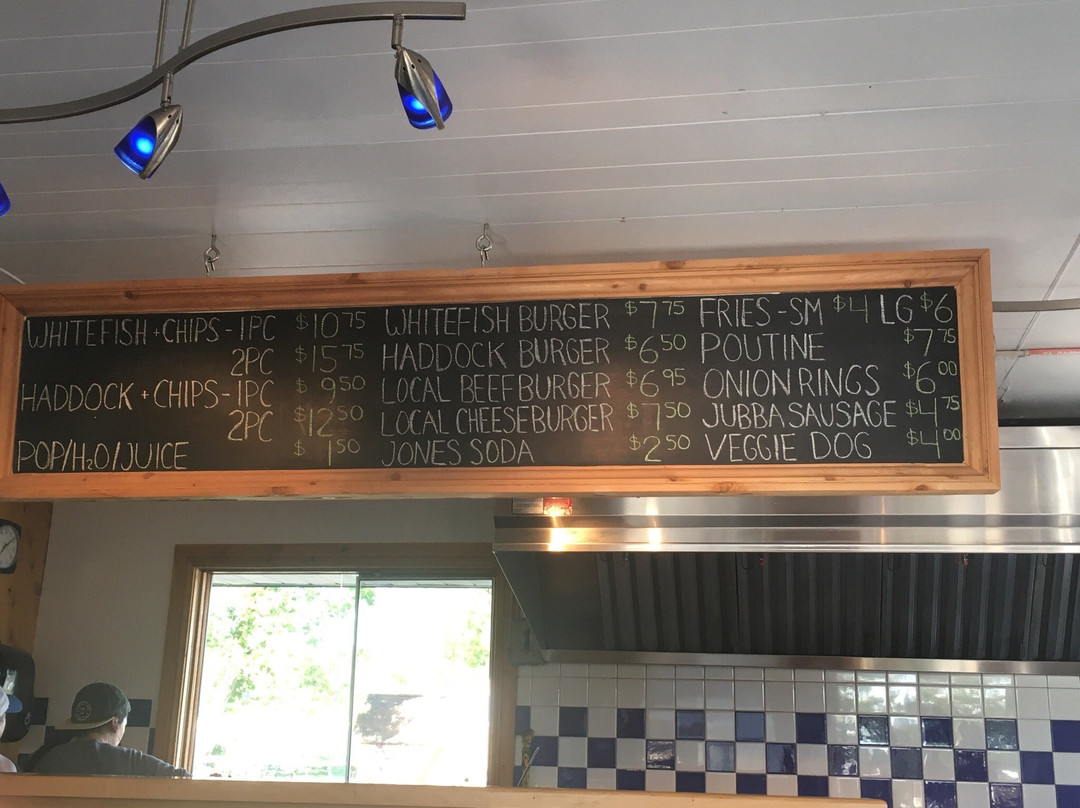 WHITEFISH + CHIPS - 1PC $10.75
2PC $15.75
HADDOCK + CHIPS - 1PC $9.50
2PC $12.50
POP/H₂O/JUICE $1.50
WHITEFISH BURGER $7.75
HADDOCK BURGER $6.50
LOCAL BEEF BURGER $6.95
LOCAL CHEESEBURGER $7.50
JONES SODA $2.50
FRIES - SM $4 LG $6
POUTINE $7.75
ONION RINGS $6.00
JUBBA SAUSAGE $4.75
VEGGIE DOG $4.00